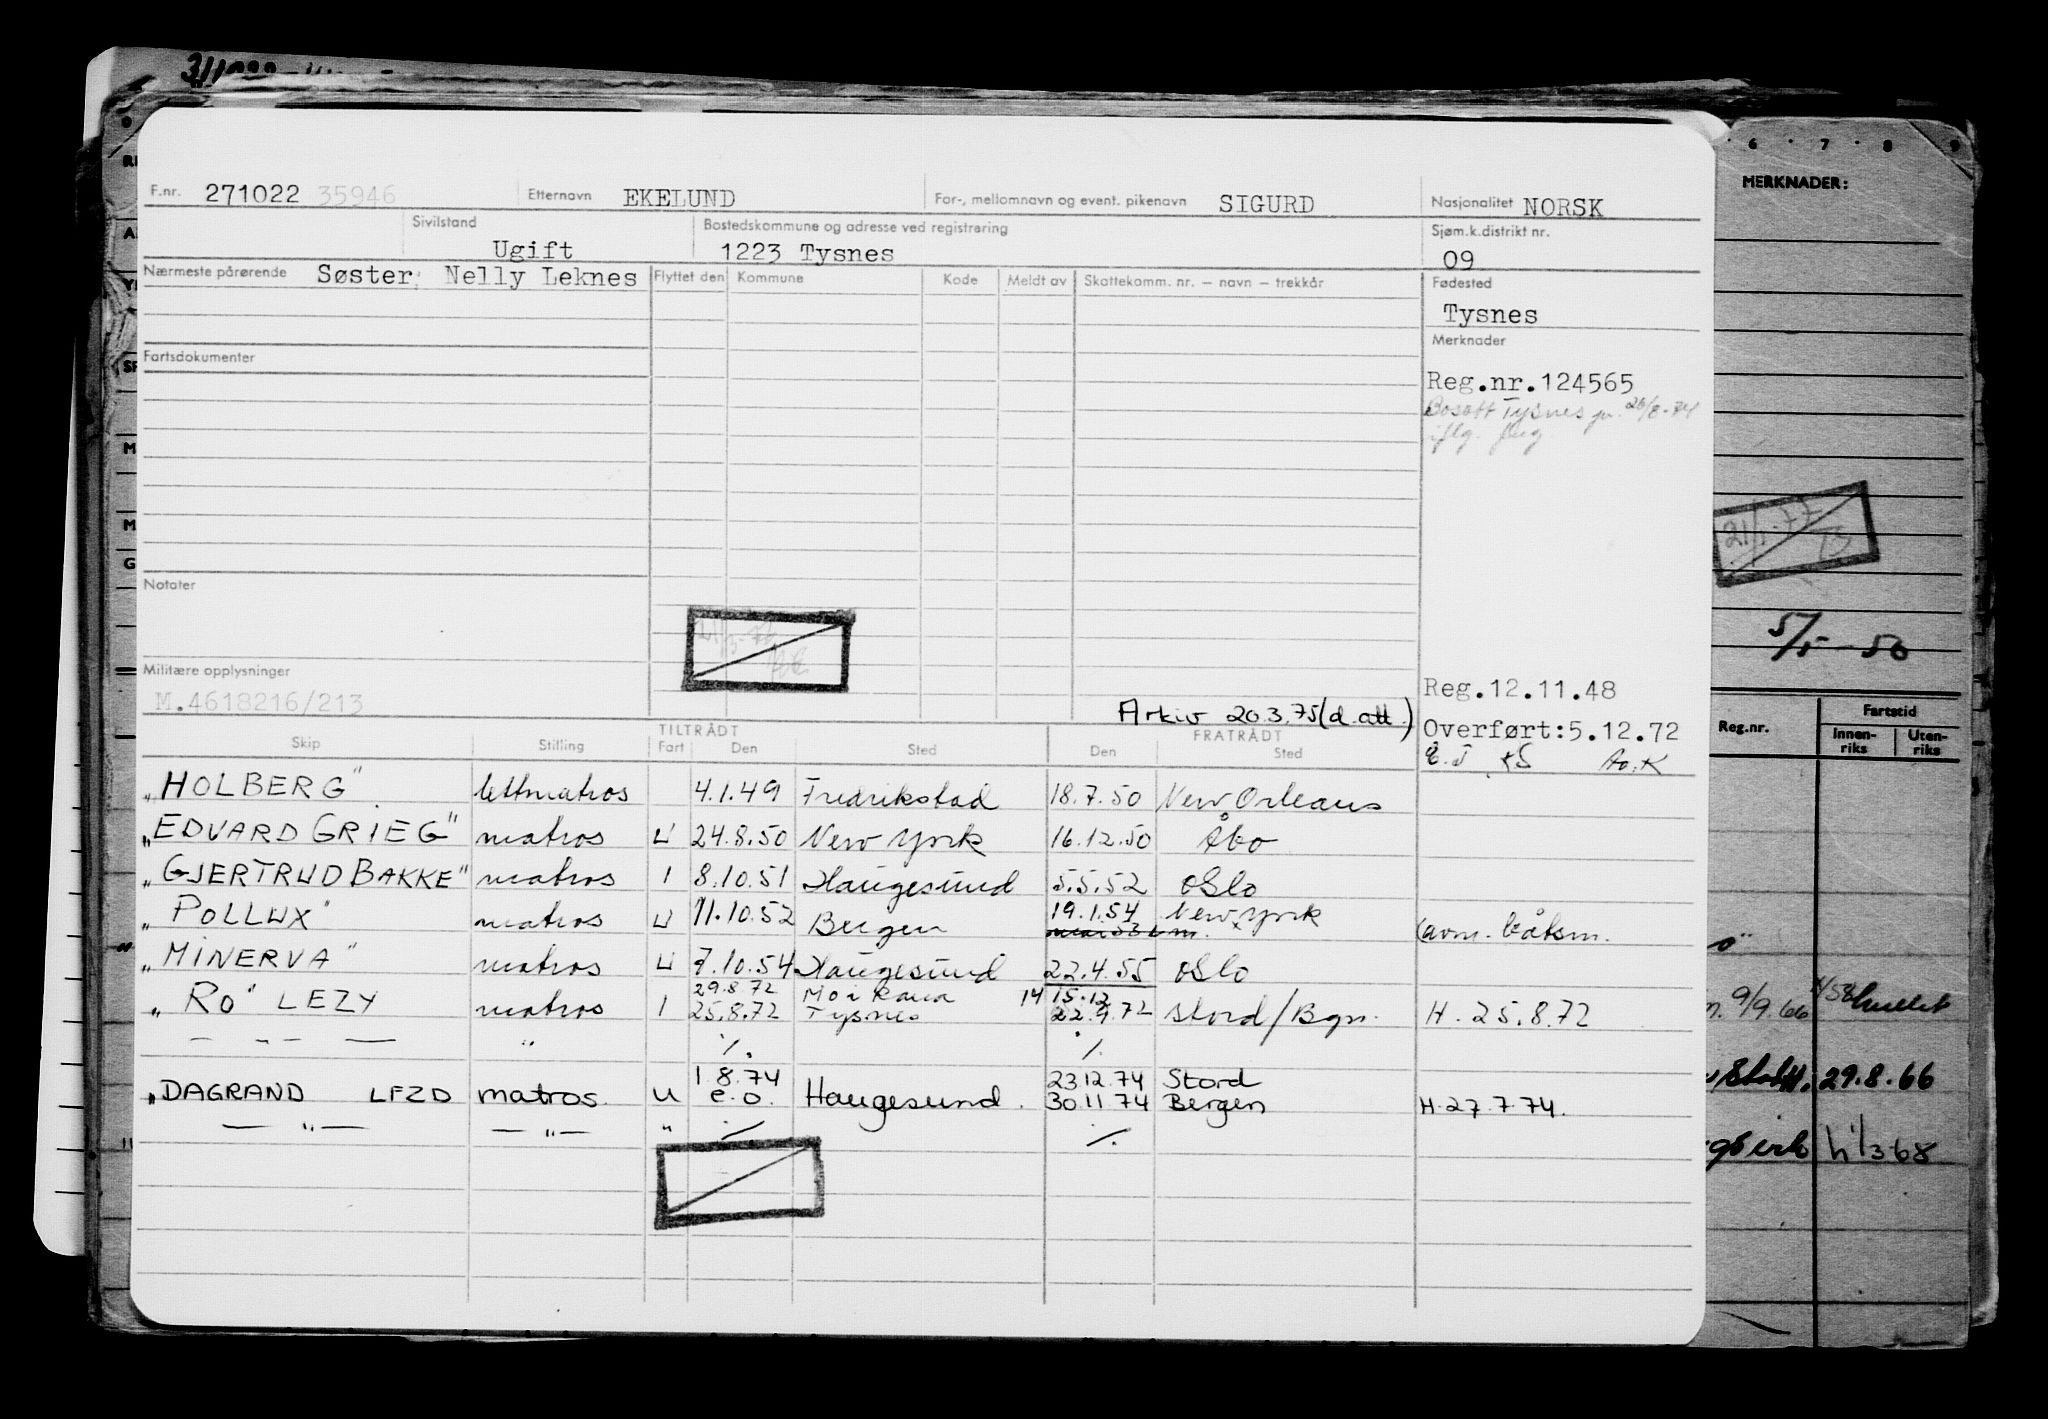 F.nr. 271022 35946 Etternavn EKELUND For-, mellomnavn og event. pikenavn SIGURD Nasjonalitet NORSK
Sivilstand Ugift Bostedskommune og adresse ved registrering 1223 Tysnes Sjøm.k.distrikt nr. 09
Nærmeste pårørende Søster: Nelly Leknes Flyttet den Kommune Kode Meldt av Skattekomm. nr. – navn – trekkår Fødested
Tysnes
Fartsdokumenter
Merknader
Reg.nr.124565
Bosatt Tysnes pr. 26/8-74
iflg.
Notater
Militære opplysninger
M.4618216/213
Reg.12.11.48
Arkiv 20.3.75 (d. att.)
Overført:5.12.72
Skip Stilling TILTRÅDT Fart Den Sted FRATRÅDT Den Sted
"HOLBERG" lettmatros 4.1.49 Fredrikstad 18.7.50 New Orleans
"EDVARD GRIEG" matros U 24.8.50 New York 16.12.50 Åbo
"GJERTRUD BAKKE" matros I 8.10.51 Haugesund 5.5.52 Oslo
"POLLUX" matros U 11.10.52 Bergen 19.1.54 New York (avm. båtsm.
"MINERVA" matros U 7.10.54 Haugesund 22.4.55 Oslo
29.8.72 Mo i Rana 14 15.12
"RO" LEZY matros I 25.8.72 Tysnes 22.9.72 Stord/Bgn. H. 25.8.72
— " — " ./. ./.
1.8.74 23.12.74 Stord
"DAGRAND LEZD matros U e.o. Haugesund. 30.11.74 Bergen H.27.7.74.
— " — — " — " ./. ./.
MERKNADER:
6 7 8 9
21/1-77
5/5-50
Reg.nr. Fartstid
Innen-riks Uten-riks
9/9.66
29.8.66